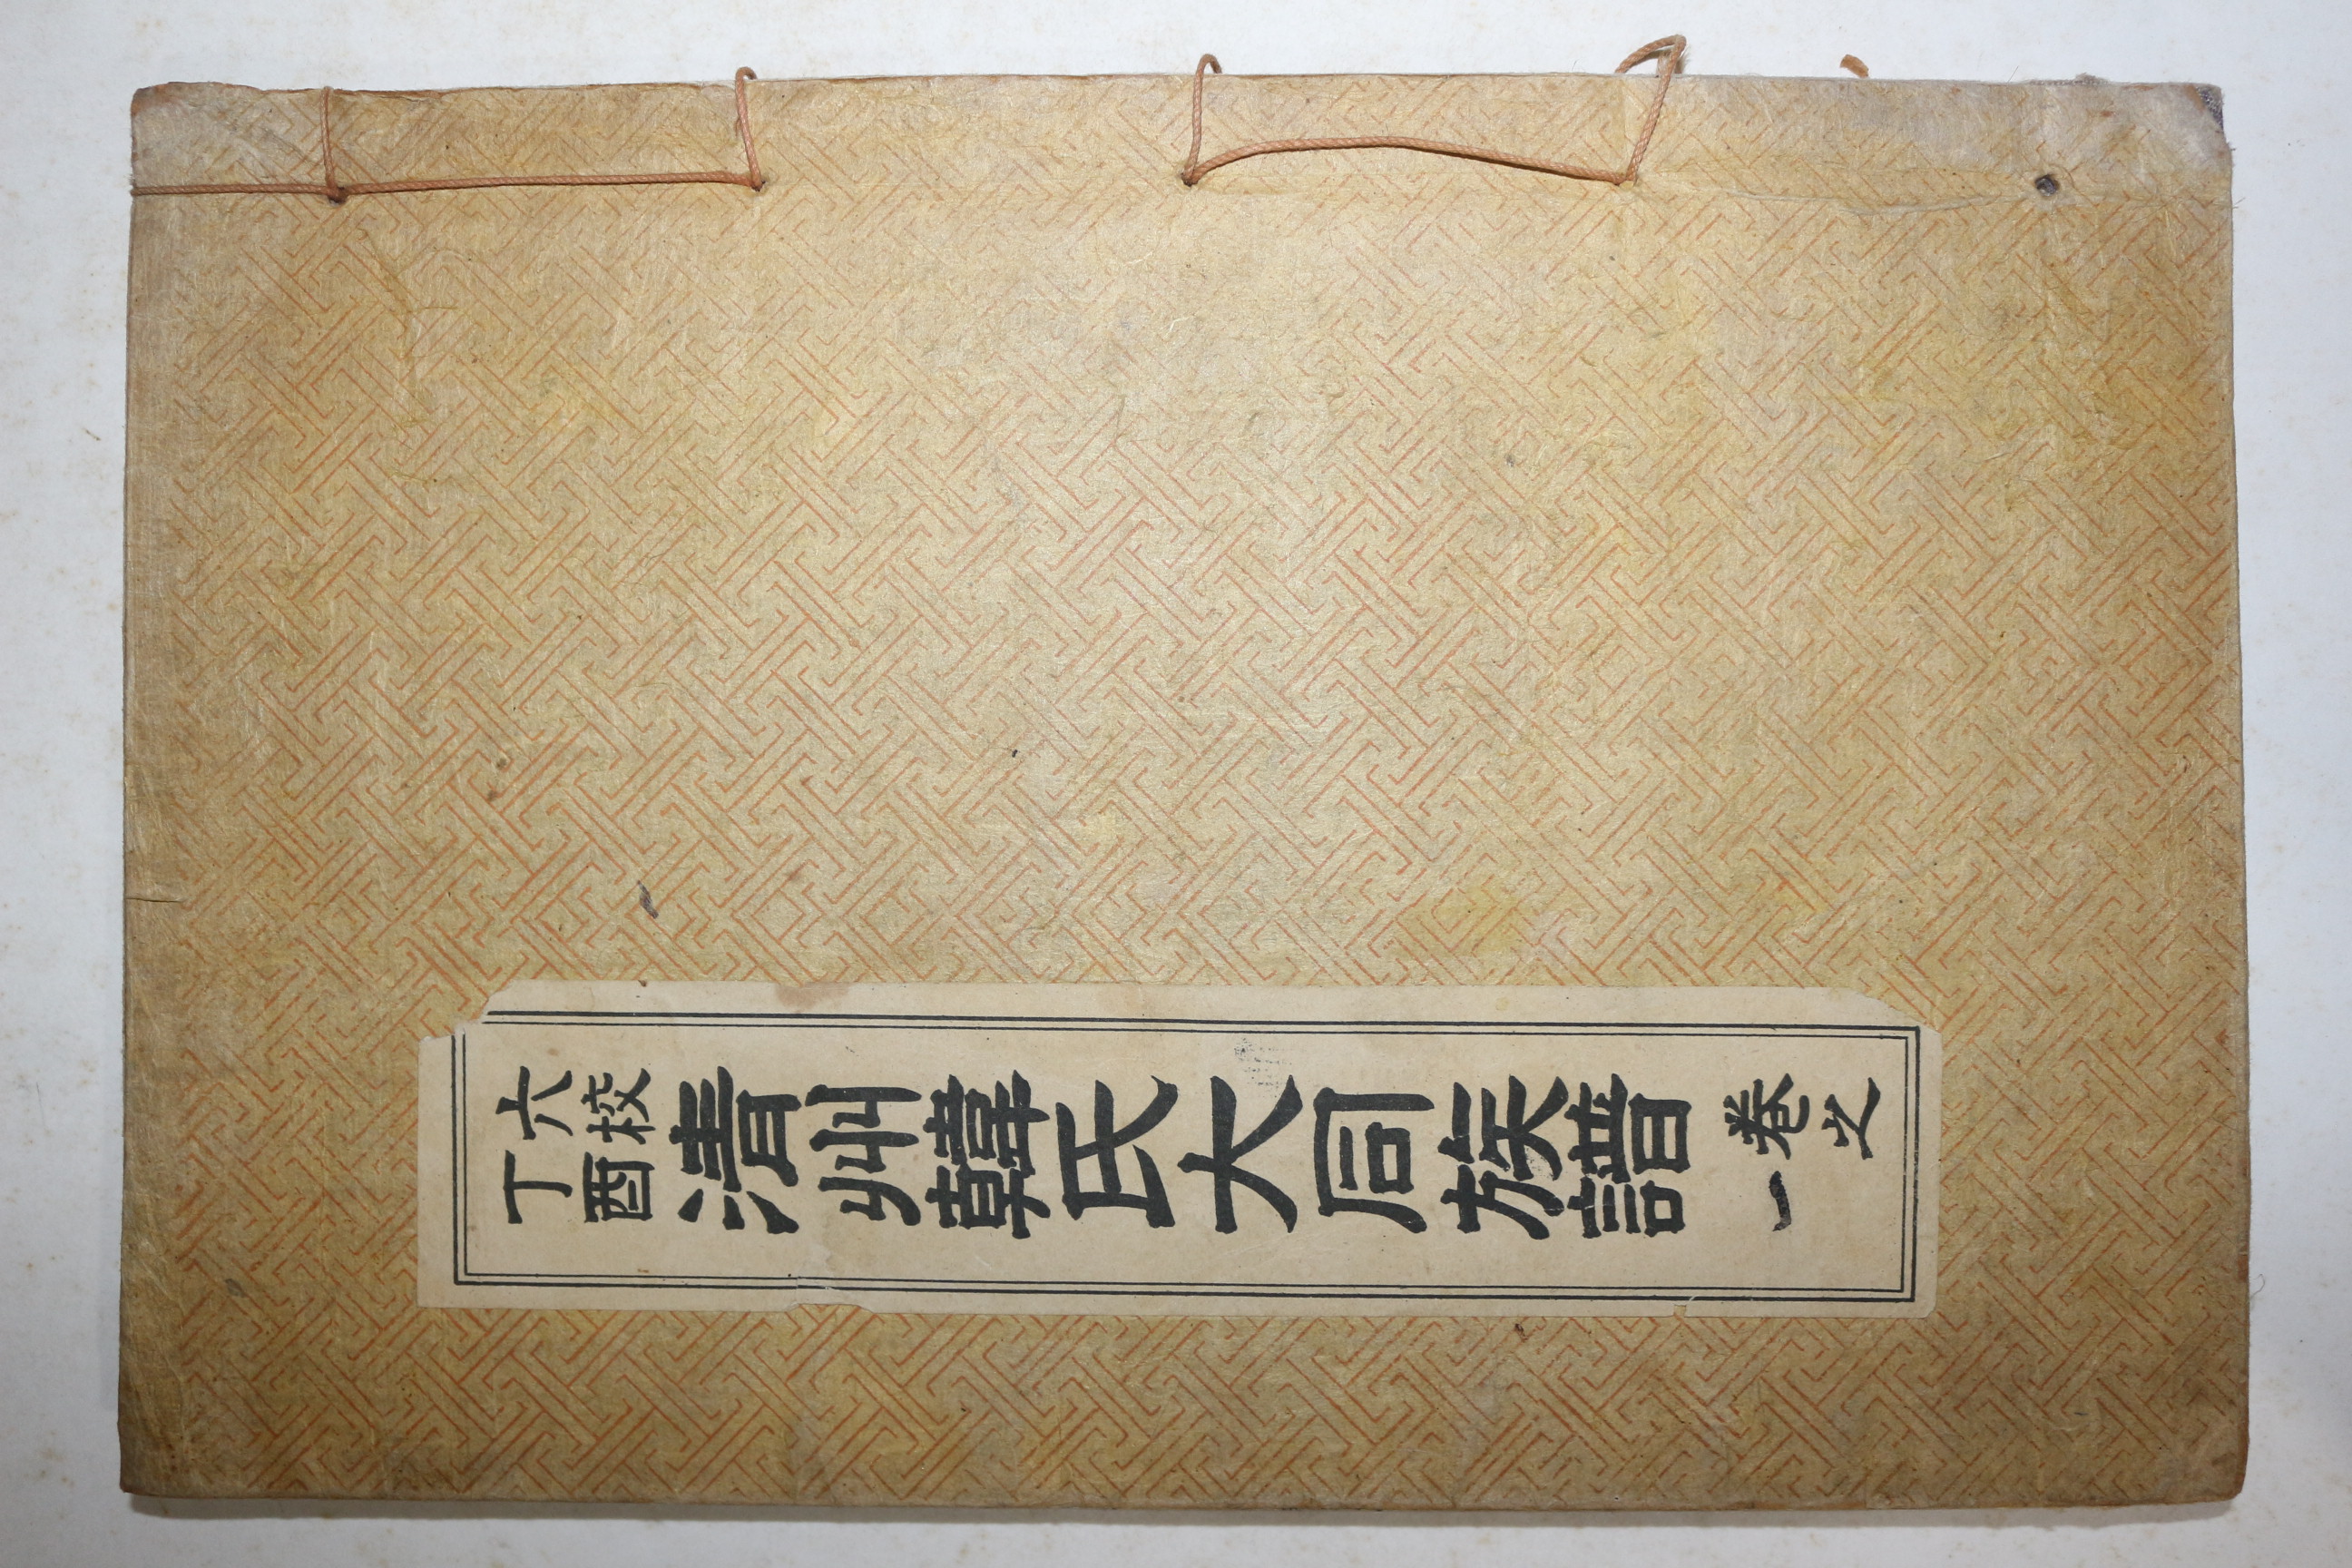 六校
丁酉
清州韓氏大同族譜
卷之
一